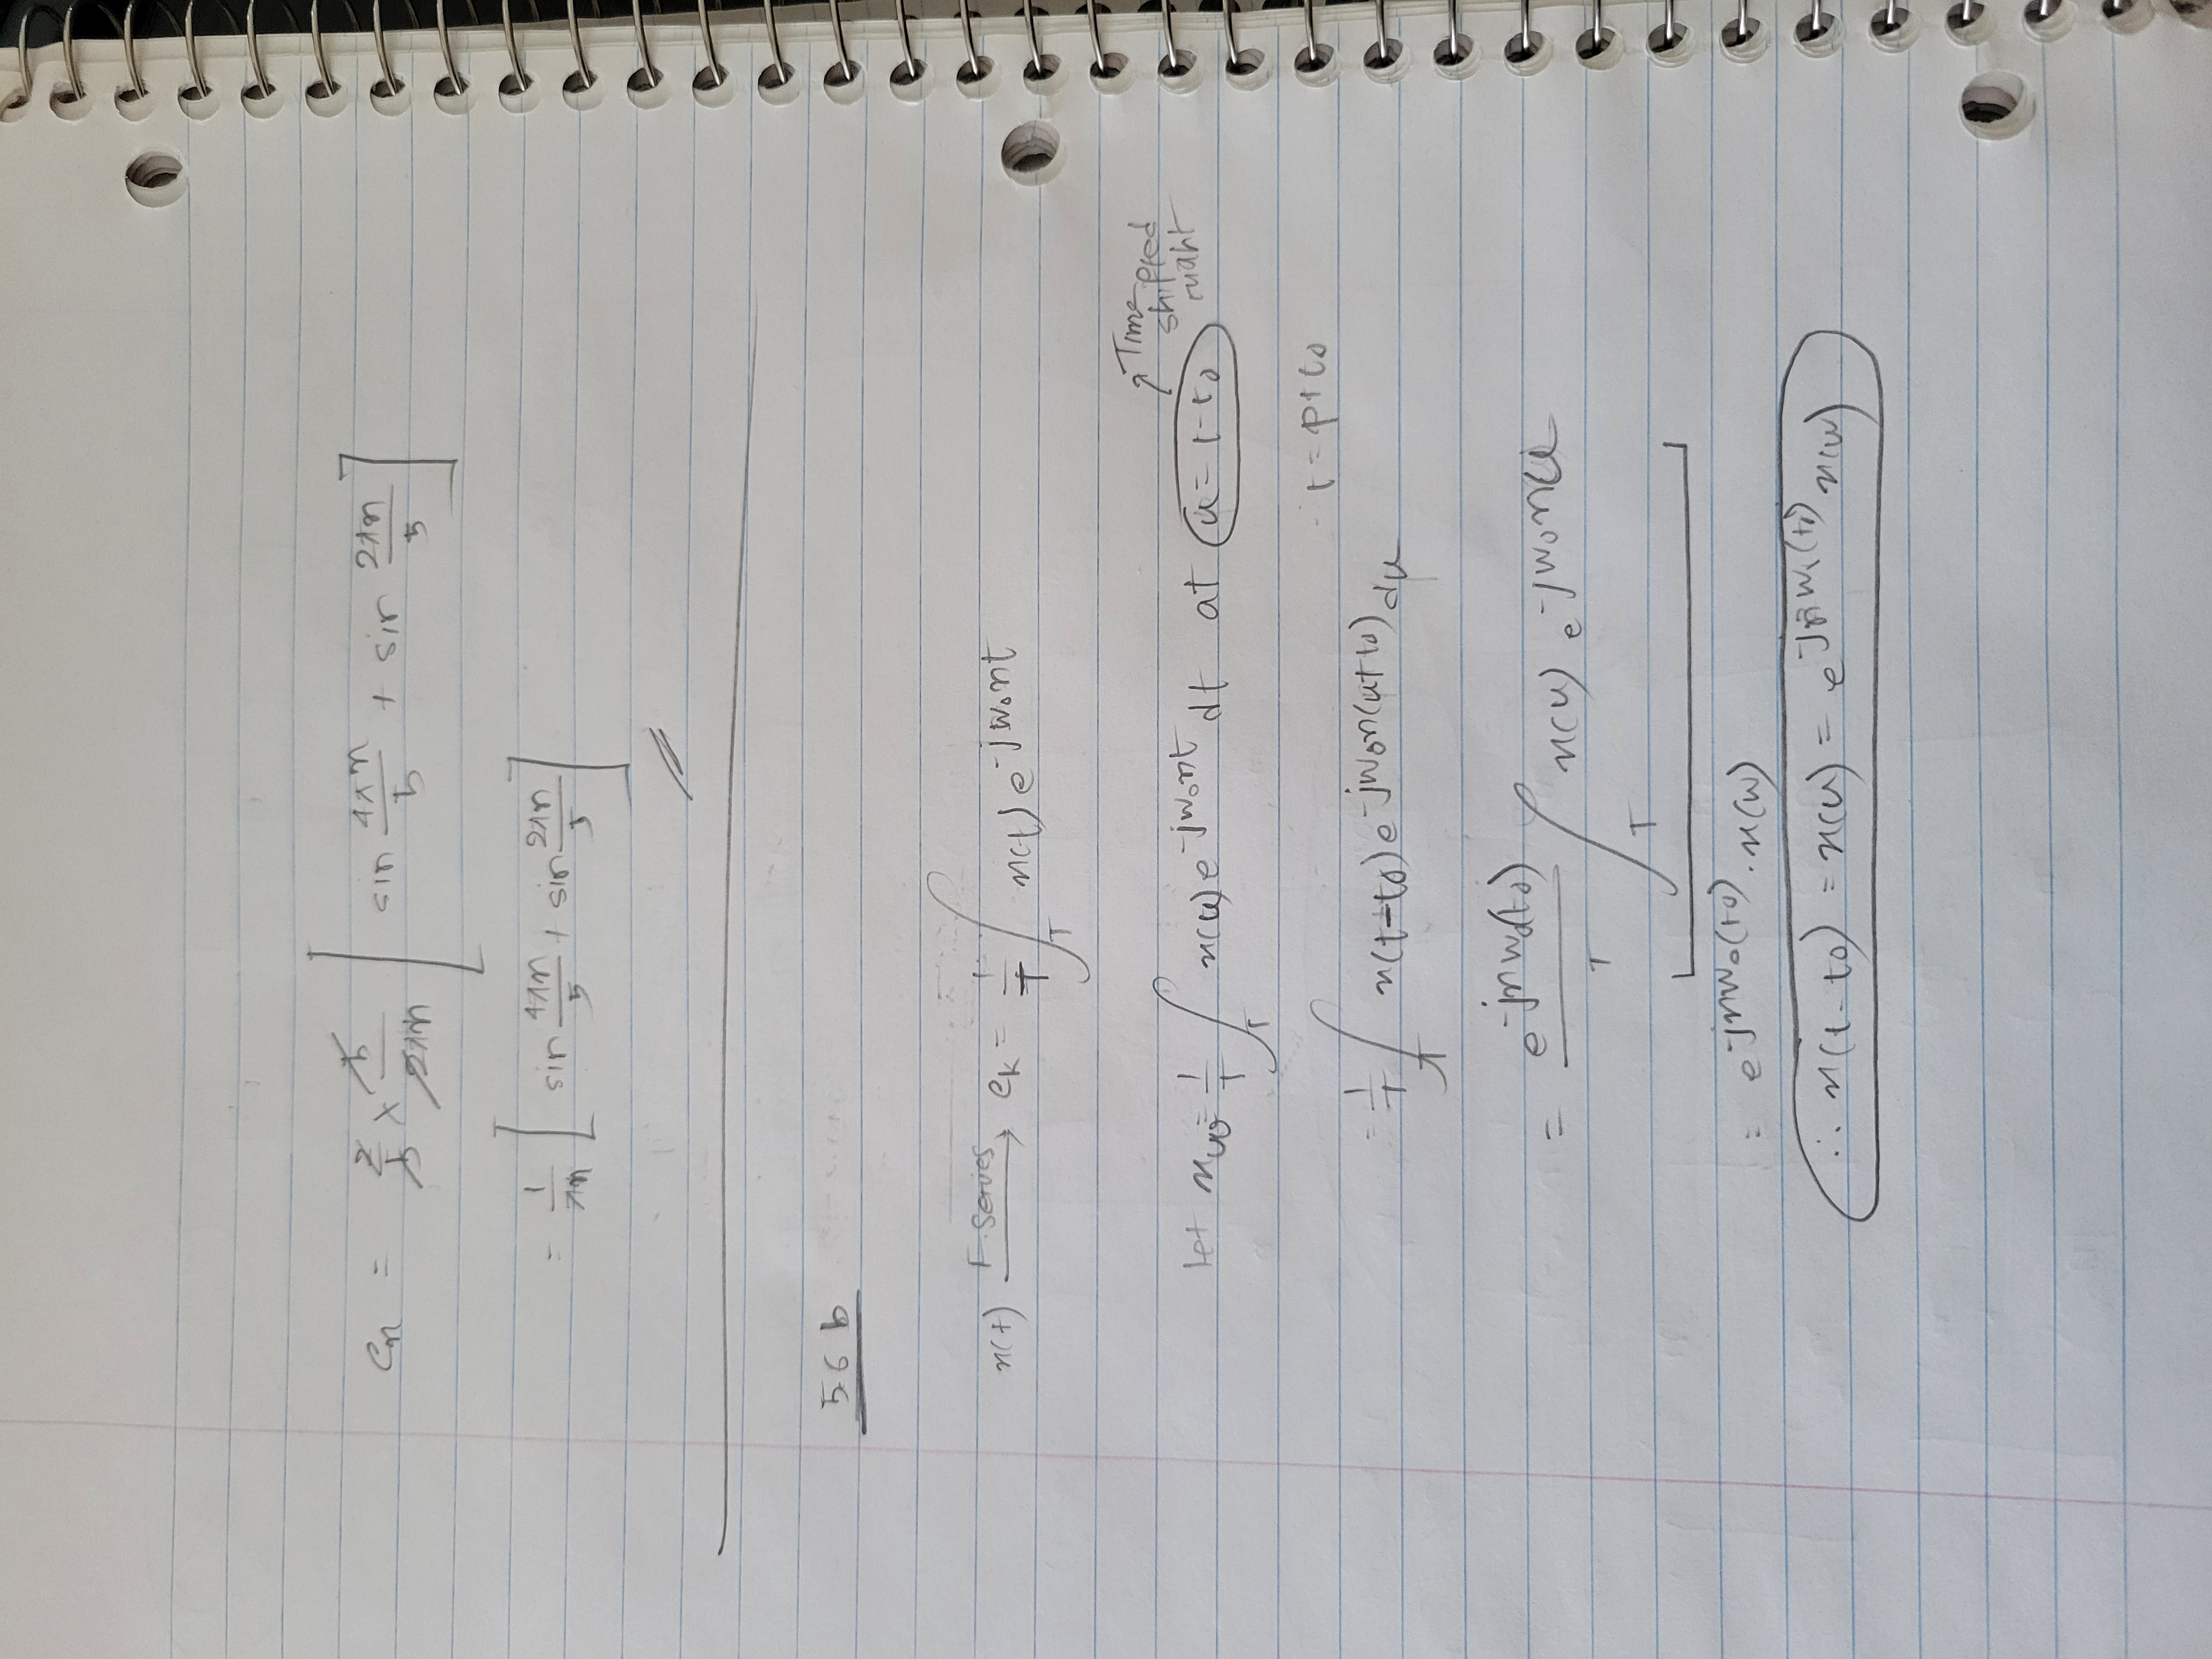 Cn = 2/5 × 5/2πn [ sin 4πn/5 + sin 2πn/5 ]
= 1/πn [ sin 4πn/5 + sin 2πn/5 ]
56 b
x(t) F. Series → ek = 1/T ∫T x(t) e^-jw0nt
let = 1/T ∫T x(u) e^-jw0nt dt at u = t-t0 ↗ Time shifted
t = p+t0
= 1/T ∫T x(t-t0) e^-jw0n(u+t0) du
= e^-jnw0(t0)/T ∫T x(u) e^-jw0nu
= e^-jnw0(t0) . x(w)
∴ x(t-t0) = x(u) = e^-jnw0(t0) x(w)